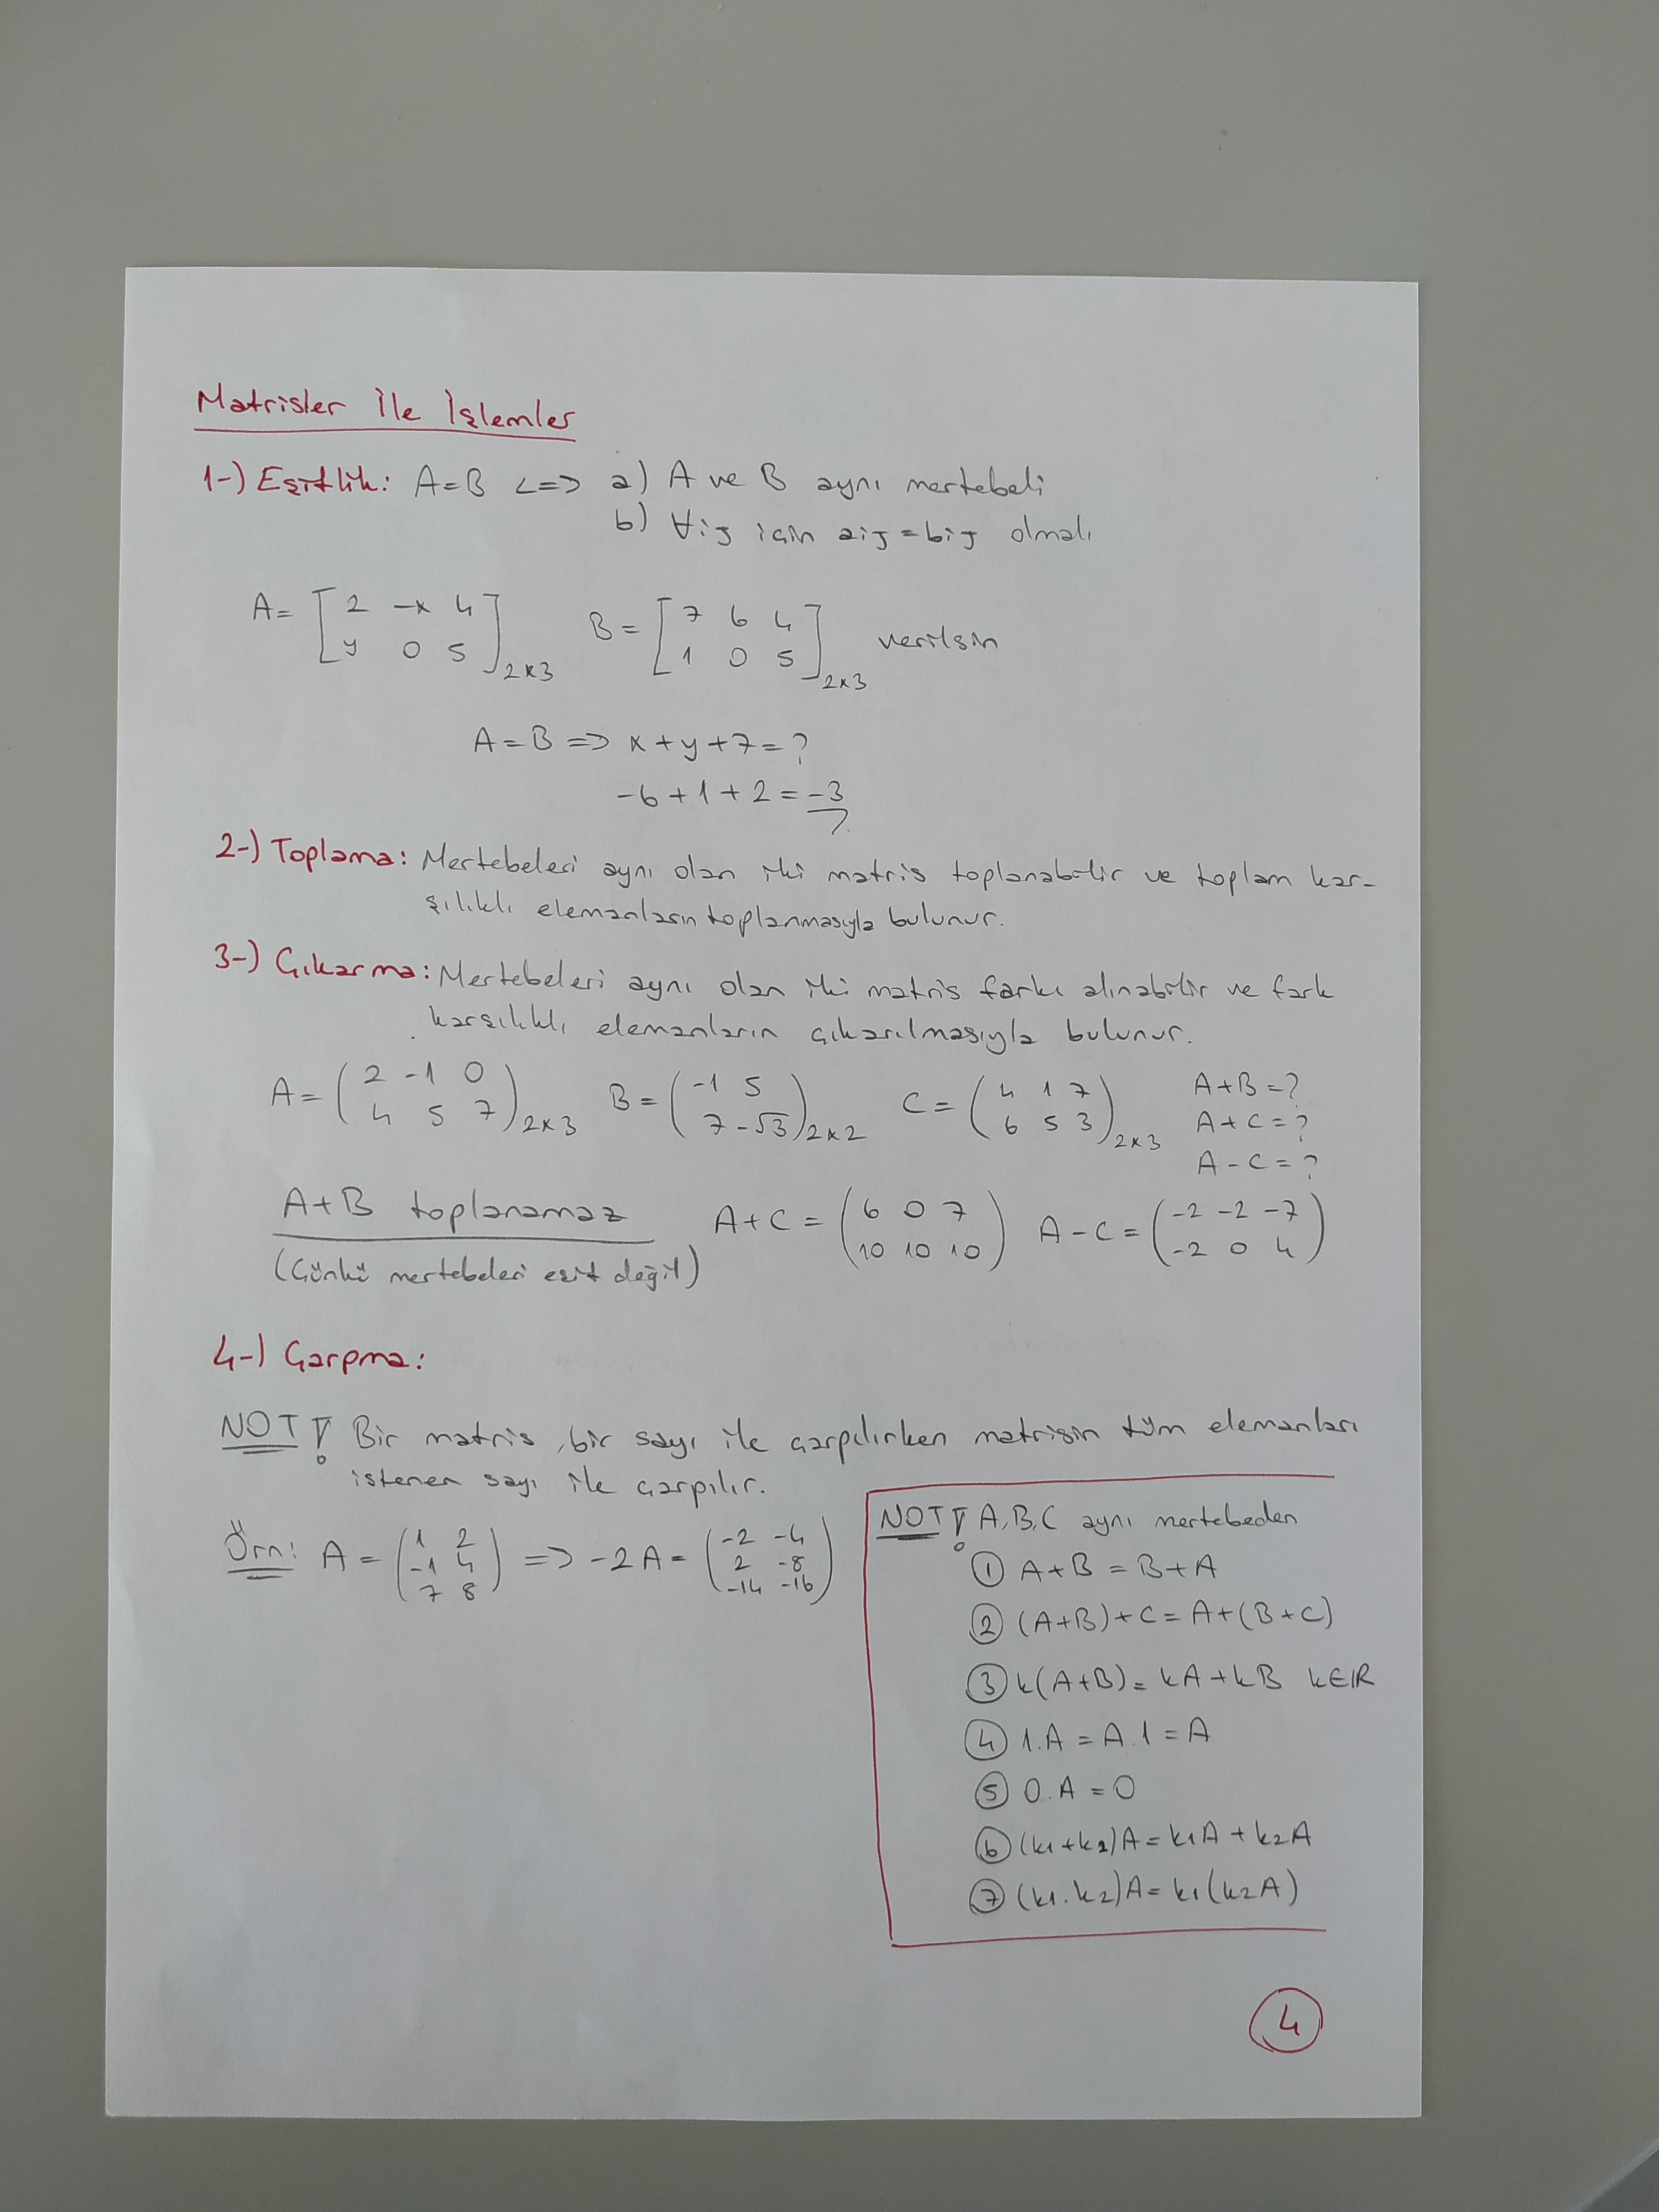 Matrisler İle İşlemler
1-) Eşitlik: A=B <=> a) A ve B aynı mertebeli
b) ∀ij için aij=bij olmalı
A = [2 -x 4
y 0 5]2x3 B = [7 6 4
1 0 5]2x3 verilsin
A=B => x+y+7=?
-6+1+2=-3
2-) Toplama: Mertebeleri aynı olan iki matris toplanabilir ve toplam kar-
şılıklı elemanların toplanmasıyla bulunur.
3-) Çıkarma: Mertebeleri aynı olan iki matris farkı alınabilir ve fark
karşılıklı elemanların çıkarılmasıyla bulunur.
A = (2 -1 0
4 5 7)2x3 B = (-1 5
7 -√3)2x2 C = (4 1 7
6 5 3)2x3 A+B=?
A+C=?
A-C=?
A+B toplanamaz
(Çünkü mertebeleri eşit değil)
A+C = (6 0 7
10 10 10) A-C = (-2 -2 -7
-2 0 4)
4-) Çarpma:
NOT! Bir matris, bir sayı ile çarpılırken matrisin tüm elemanları
istenen sayı ile çarpılır.
Örn: A = (1 2
-1 4
7 8) => -2A = (-2 -4
2 -8
-14 -16)
NOT! A,B,C aynı mertebeden
① A+B = B+A
② (A+B)+C = A+(B+C)
③ k(A+B) = kA+kB k∈IR
④ 1.A = A.1 = A
⑤ 0.A = 0
⑥ (k1+k2)A = k1A+k2A
⑦ (k1.k2)A = k1(k2A)
4